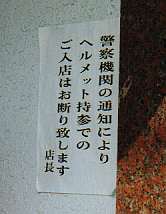 警察機関の通知により
ヘルメット持参での
ご入店はお断り致します
店長